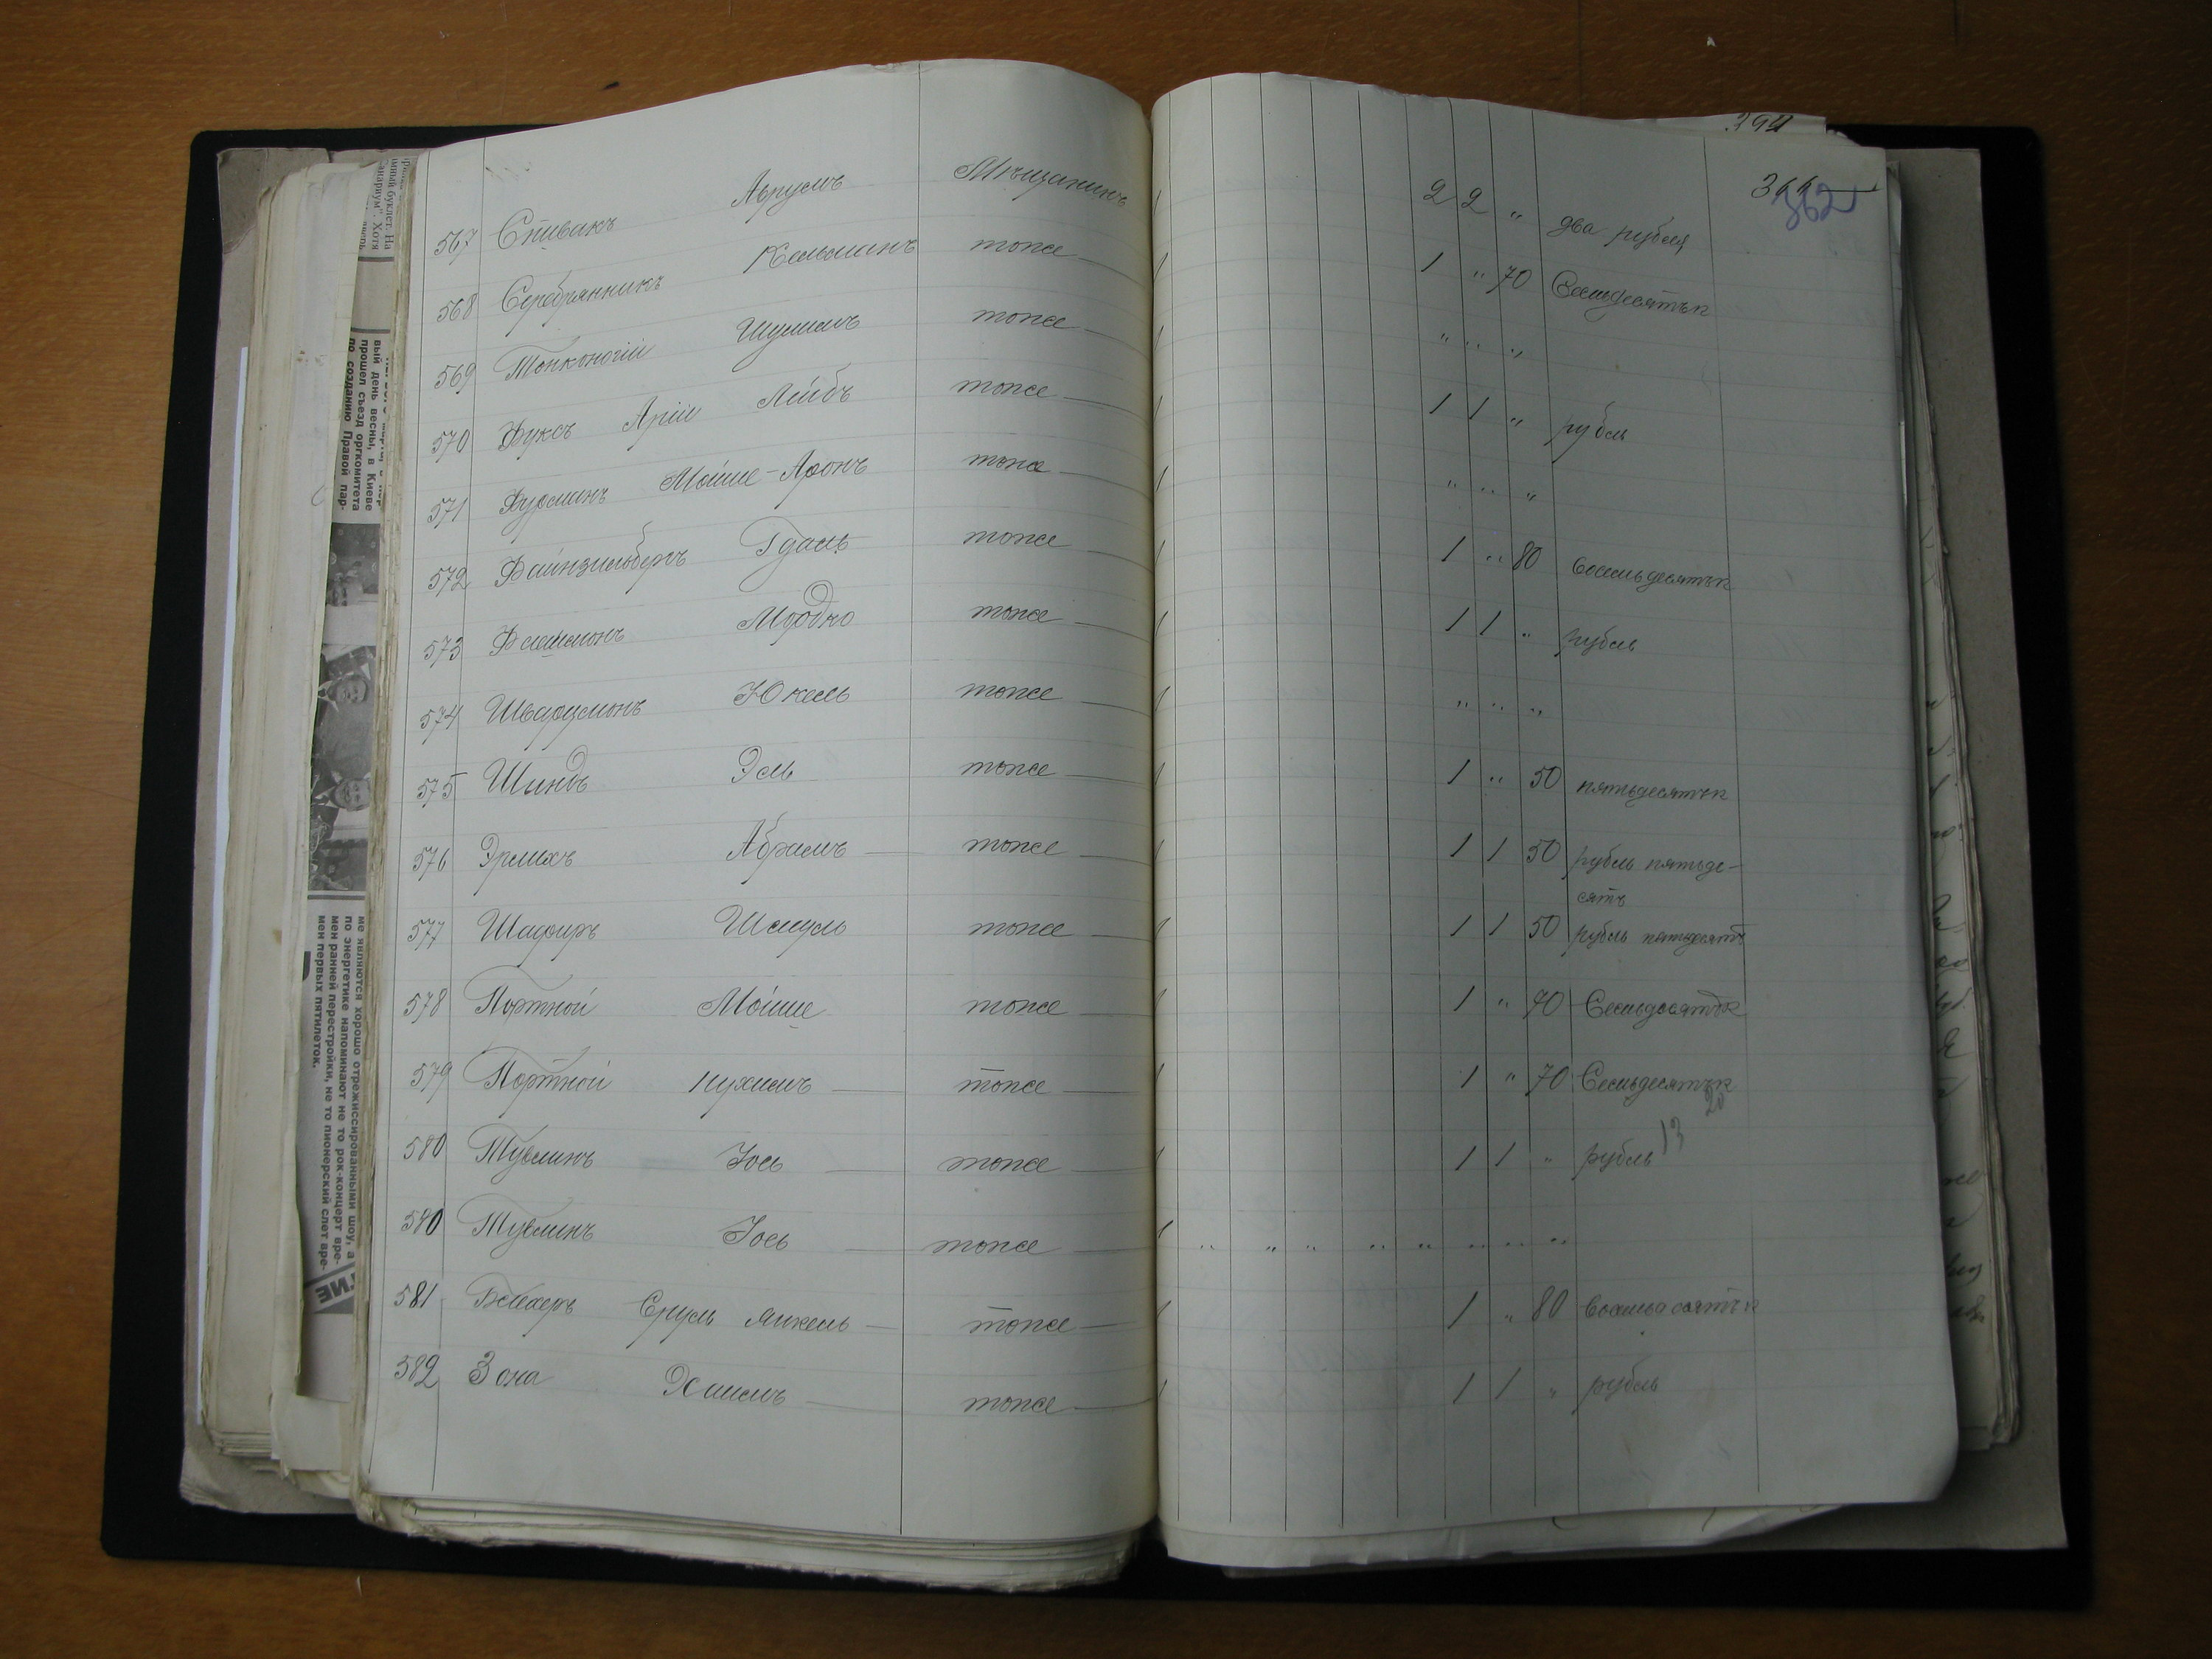 394
362
567 Спивакъ Аврумъ Мѣщанинъ 2 2 " два рубля
568 Серебрянникъ Кельманъ тоже 1 " 70 Семьдесятъ к
569 Тонконогій Шулимъ тоже " " "
570 Фуксъ Арій Лейбъ тоже 1 1 " рубль
571 Фурманъ Мойше-Аронъ тоже " " "
572 Файнзильберъ Гдаль тоже 1 " 80 восемьдесятъ к
573 Флешмонъ Мордко тоже 1 1 " рубль
574 Шварцмонъ Юкель тоже " " "
575 Шиндъ Эль тоже 1 " 50 пятьдесятъ к
576 Эрлихъ Абрамъ тоже 1 1 50 рубль пятьде-
сятъ
577 Шафиръ Шмуль тоже 1 1 50 рубль пятьдесятъ
578 Портной Мойше тоже 1 " 70 Семьдесятъ к
579 Портной Нухимъ тоже 1 " 70 Семьдесятъ к
20
580 Тувлинъ Іось тоже 1 1 " рубль 13
580 Тувлинъ Іось тоже " " " " " " " "
581 Блехеръ Сруль Янкель тоже 1 " 80 Восемьдесятъ к
582 Зона Хаимъ тоже 1 1 " рубль
вый день весны, в Киеве
прошел съезд оргкомитета
по созданию Правой пар-
ме являются хорошо отрежиссированными шоу, а
по энергетике напоминают не то рок-концерт вре-
мен ранней перестройки, не то пионерский слет вре-
мен первых пятилеток.